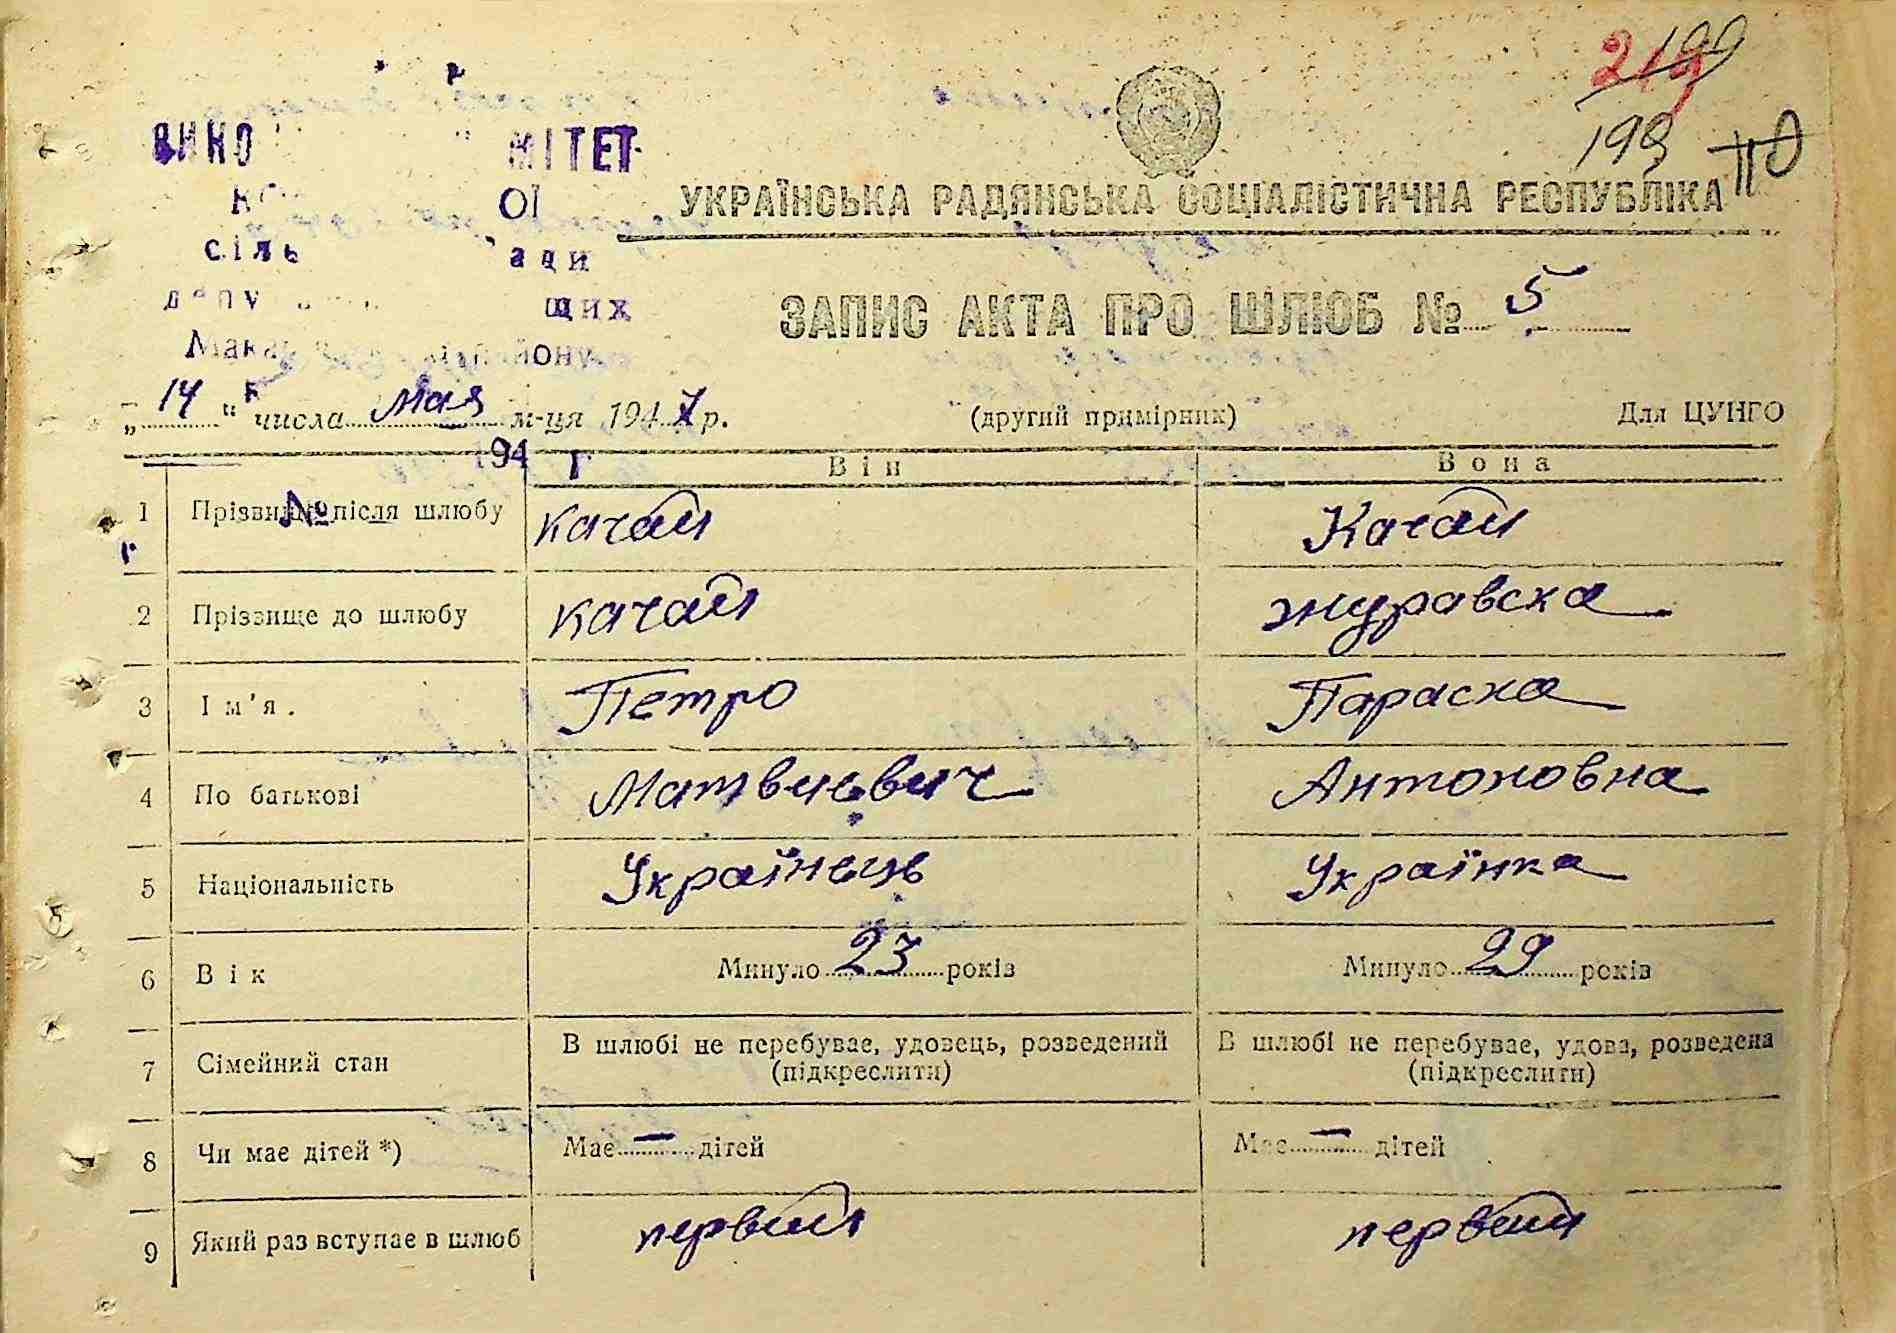 199
219
199
ВИНО МІТЕТ
ОЇ
УКРАЇНСЬКА РАДЯНСЬКА СОЦІАЛІСТИЧНА РЕСПУБЛІКА
сіль ади
депу щих
ЗАПИС АКТА ПРО ШЛЮБ № 5
Мака йону
„ 14 " числа Мая м-ця 1947 р. (другий примірник) Для ЦУНГО
194 г
Він Вона
1 Прізвище після шлюбу Качай Качай
№
2 Прізвище до шлюбу Качай Журавска
3 Ім'я. Петро Параска
4 По батькові Матвиевич Антоновна
5 Національність Українець Українка
6 Вік Минуло 23 років Минуло 29 років
7 Сімейний стан В шлюбі не перебуває, удовець, розведений (підкреслити) В шлюбі не перебуває, удова, розведена (підкреслити)
8 Чи має дітей *) Має — дітей Має — дітей
9 Який раз вступає в шлюб первий первий